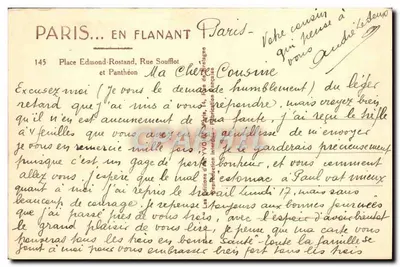 PARIS... EN FLANANT
145 Place Edmond-Rostand, Rue Soufflot
et Panthéon
Paris -
Votre cousin
qui pense à
vous
André Ledeux
Ma Chère Cousine
Excusez moi (Je vous le demande humblement) du léger
retard que j'ai mis à vous répondre, mais voyez bien
qu'il n'en est aucunement de ma faute. j'ai reçu le trèfle
à 4 feuilles que vous avez gentillesse de m'envoyer
je vous en remercie mille fois garderais précieusement
puisque c'est un gage de porte bonheur, et vous comment
allez vous. j'espère que le mal estomac à Paul va mieux
quant à moi j'ai repris le travail Lundi 17, mais sans
beaucoup de courage. je repense toujours aux bonnes journées
que j'ai passé près de vous trois, avec l'espoir d'avoir bientôt
le grand plaisir de vous lire, je pense que ma carte vous
trouveras tous les trois en bonne Santé - toute la famille se
joint à moi pour vous embrasser bien fort tous les trois